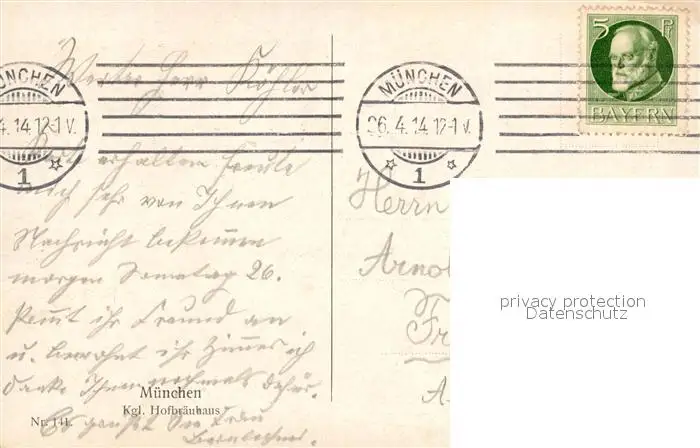 Werter Herr Köhler
erhalten heute
mich sehr von Ihnen
Nachricht bekommen
morgen Sonntag 26.
kommt ihr Freund an
u. bewohnt ihr Zimmer ich
danke Ihnen nochmals dafür.
Es grüßt Sie Frau
München
Kgl. Hofbräuhaus
Nr. 141.
MÜNCHEN
4.14.12-1 V.
1
MÜNCHEN
26.4.14.12-1 V.
1
5 Pf
BAYERN
Herrn
Arno
Fr
A
privacy protection
Datenschutz